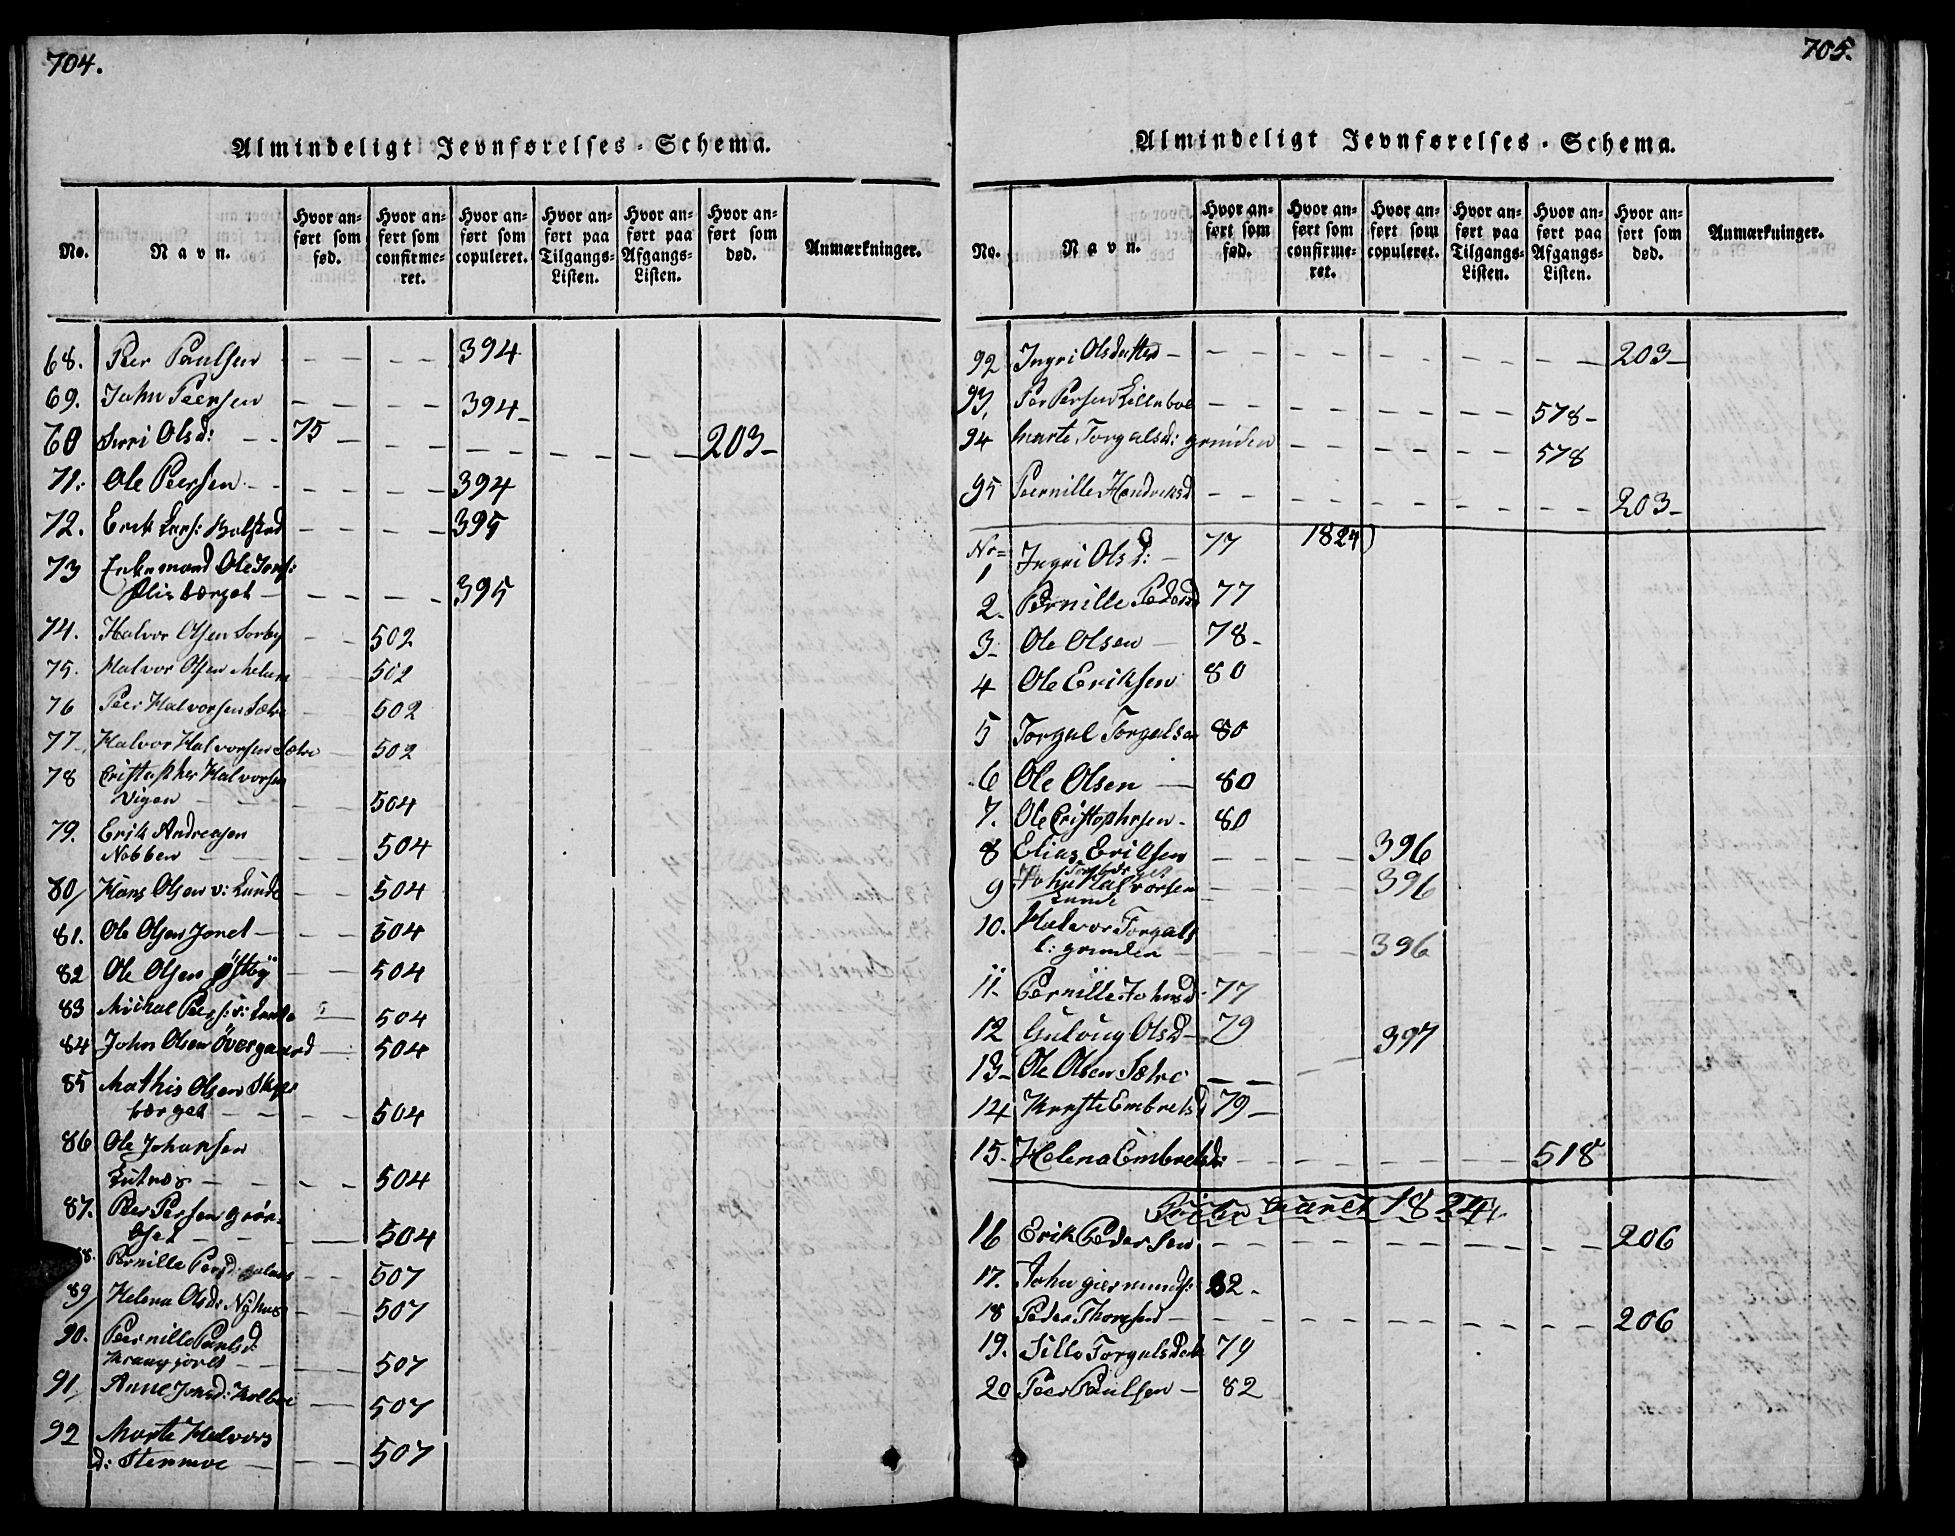 704.
Almindeligt Jevnførelses-Schema.
No. Navn. Hvor anført som fød. Hvor anført som confirmeret. Hvor anført som copuleret. Hvor anført paa Tilgangs-Listen. Hvor anført paa Afgangs-Listen. Hvor anført som død. Anmærkninger.
68. Peer Paulsen - - - - 394
69. John Peersen - - - - 394-
70 Sirri Olsd: - - 75 - - - - - - - 203-
71. Ole Peersen - - - - - - 394
72. Erik Lars: Bolstad - - - - 395
73 Enkemand Ole Jons:
berget - - - - - 395
74. Halvor Olsen Sorby - - 502
75. Halvor Olsen Melum - - 502
76 Peer Halvorsen Sætre - - 502
77. Halvor Halvorsen Sætre - 502
78 Cristopher Halvorsen
Vigen - - - - 504
79. Erik Andreasen
Nobben - - - - 504
80/ Hans Olsen v: Lunde - - 504
81. Ole Olsen Jonet - - - 504
82 Ole Olsen Østby - - 504
83 Michal Peers: v: Lunde - 504
84 John Olsen Övergaard - 504
85 Mathis Olsen
berget - - - - 504
86 Ole Johansen
Lutnes - - - - 504
87. Peer Persen
- - - - 504
88. Pernille Persd: - - 507
89/ Helena Olsd: Nyhuus - - 507
90. Peernille Paulsd:
- - - 507
91, Anne Jonsd: Holboe - - 507
92 Marte Halvors
d: Stenmoe - - - 507
705.
Almindeligt Jevnførelses-Schema.
No. Navn. Hvor anført som fød. Hvor anført som confirmeret. Hvor anført som copuleret. Hvor anført paa Tilgangs-Listen. Hvor anført paa Afgangs-Listen. Hvor anført som død. Anmærkninger.
92 Ingri Olsdatter - - - - - - - - - - 203-
93, Per Persen Lilleboe - - - - - - - - 578-
94 Marte Torgalsd: grinden - - - - - - 578
95 Peernille Hendriksd - - - - - - - - - - 203-
No= 1824)
1 Ingri Olsd: - 77
2. Pernille Pedersd 77
3- Ole Olsen - 78-
4 Ole Eriksen 80
5 Torgal Torgalsen 80
6 Ole Olsen - 80
7. Ole Cristophersen - 80
8 Elias Eriksen - - - - 396
9 John Halvorsen - - - - 396
Lunde -
10. Halvor Torgals
l: grinden - - - - - 396
11- Pernille Johnsd: 77
12 Guloug Olsd - 79
13- Ole Olsen Sætre - - - 397
14 Kerste Embretsd 79-
15- Helena Embretsd: - - - - - - - - 518
aaret 1824.
16 Erik Pedersen - - - - - - - - - - 206
17. John giermunds: 82-
18 Peder Thoresen - - - - - - - - - - 206
19. Sille Torgalsdat 79
20 Peer Paulsen - 82